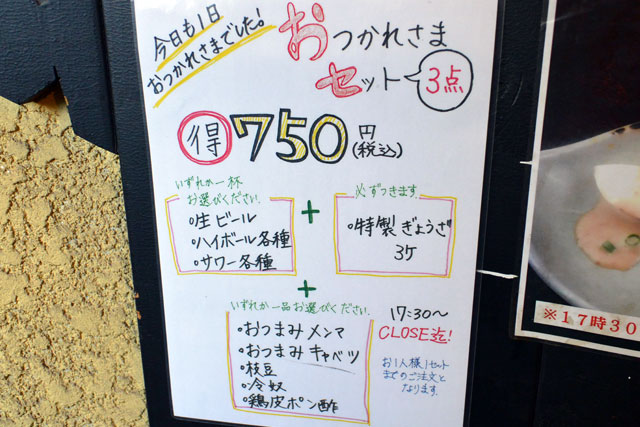 今日も1日
おつかれさまでした!
おつかれさま
セット
3点
得 750円
(税込)
いずれか一杯
お選びください.
○生ビール
○ハイボール各種
○サワー各種
+
必ずつきます.
○特製ぎょうざ
3ケ
+
いずれか一品お選びください.
○おつまみメンマ
○おつまみキャベツ
○枝豆
○冷奴
○鶏皮ポン酢
17:30〜
CLOSE迄!
お1人様1セット
までのご注文と
なります.
※17時30